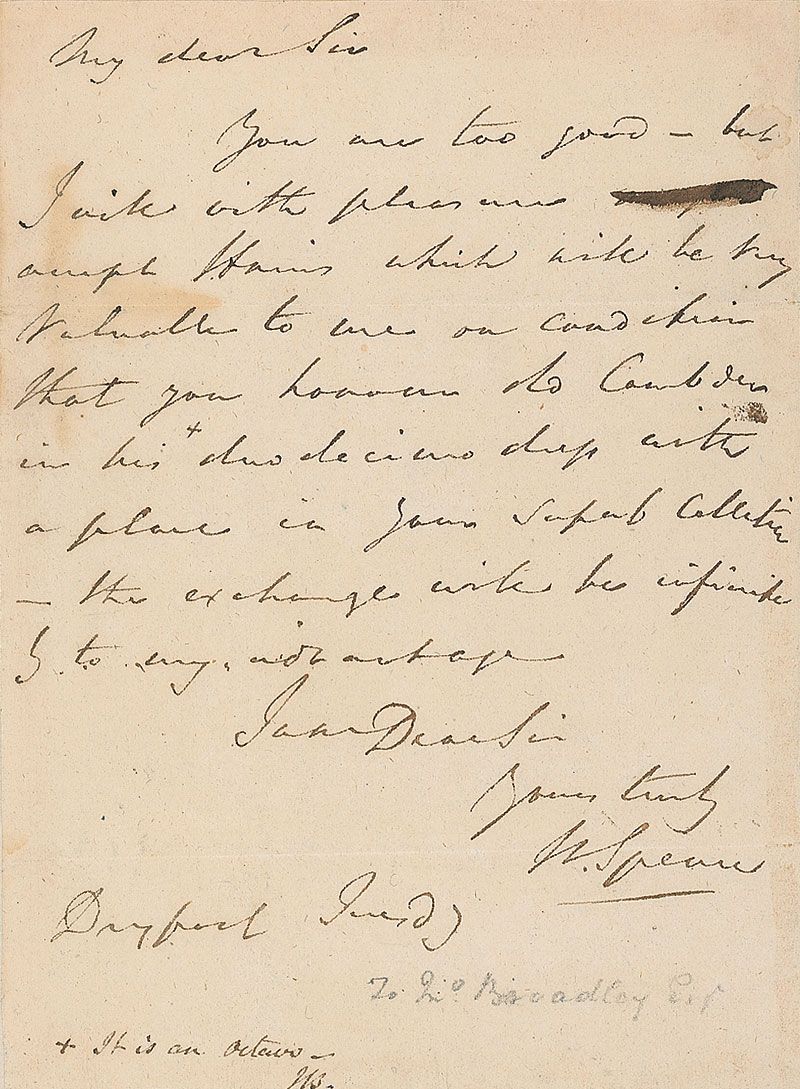 My dear Sir
You are too good – but
I will with pleasure
accept Harris which will be very
valuable to me on condition
that you honour old Cambden
in his + duodecimo dress with
a place in your superb Collection
– the exchange will be infinite
ly to my advantage
I am Dear Sir
Yours truly
W. Spence
Drypool Tuesdy
To Jno. Broadley Esqr
+ It is an octavo –